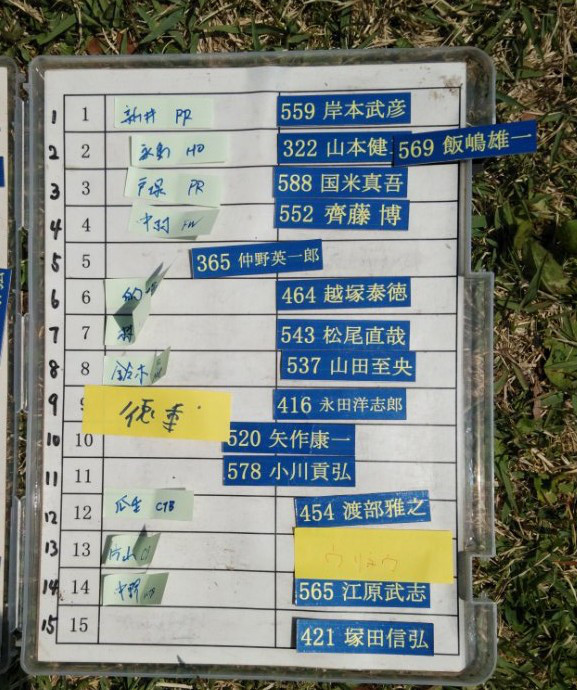 1 1 新井 PR 559 岸本武彦
2 2 HO 322 山本健 569 飯嶋雄一
3 3 戸塚 PR 588 国米真吾
4 4 中村 FW 552 齊藤 博
5 5 365 仲野英一郎
6 6 464 越塚泰徳
7 7 543 松尾直哉
8 8 鈴木 537 山田至央
9 9 416 永田洋志郎
10 10 520 矢作康一
11 11 578 小川貢弘
12 12 瓜生 CTB 454 渡部雅之
13 13 片山
14 14 中野 565 江原武志
15 15 421 塚田信弘